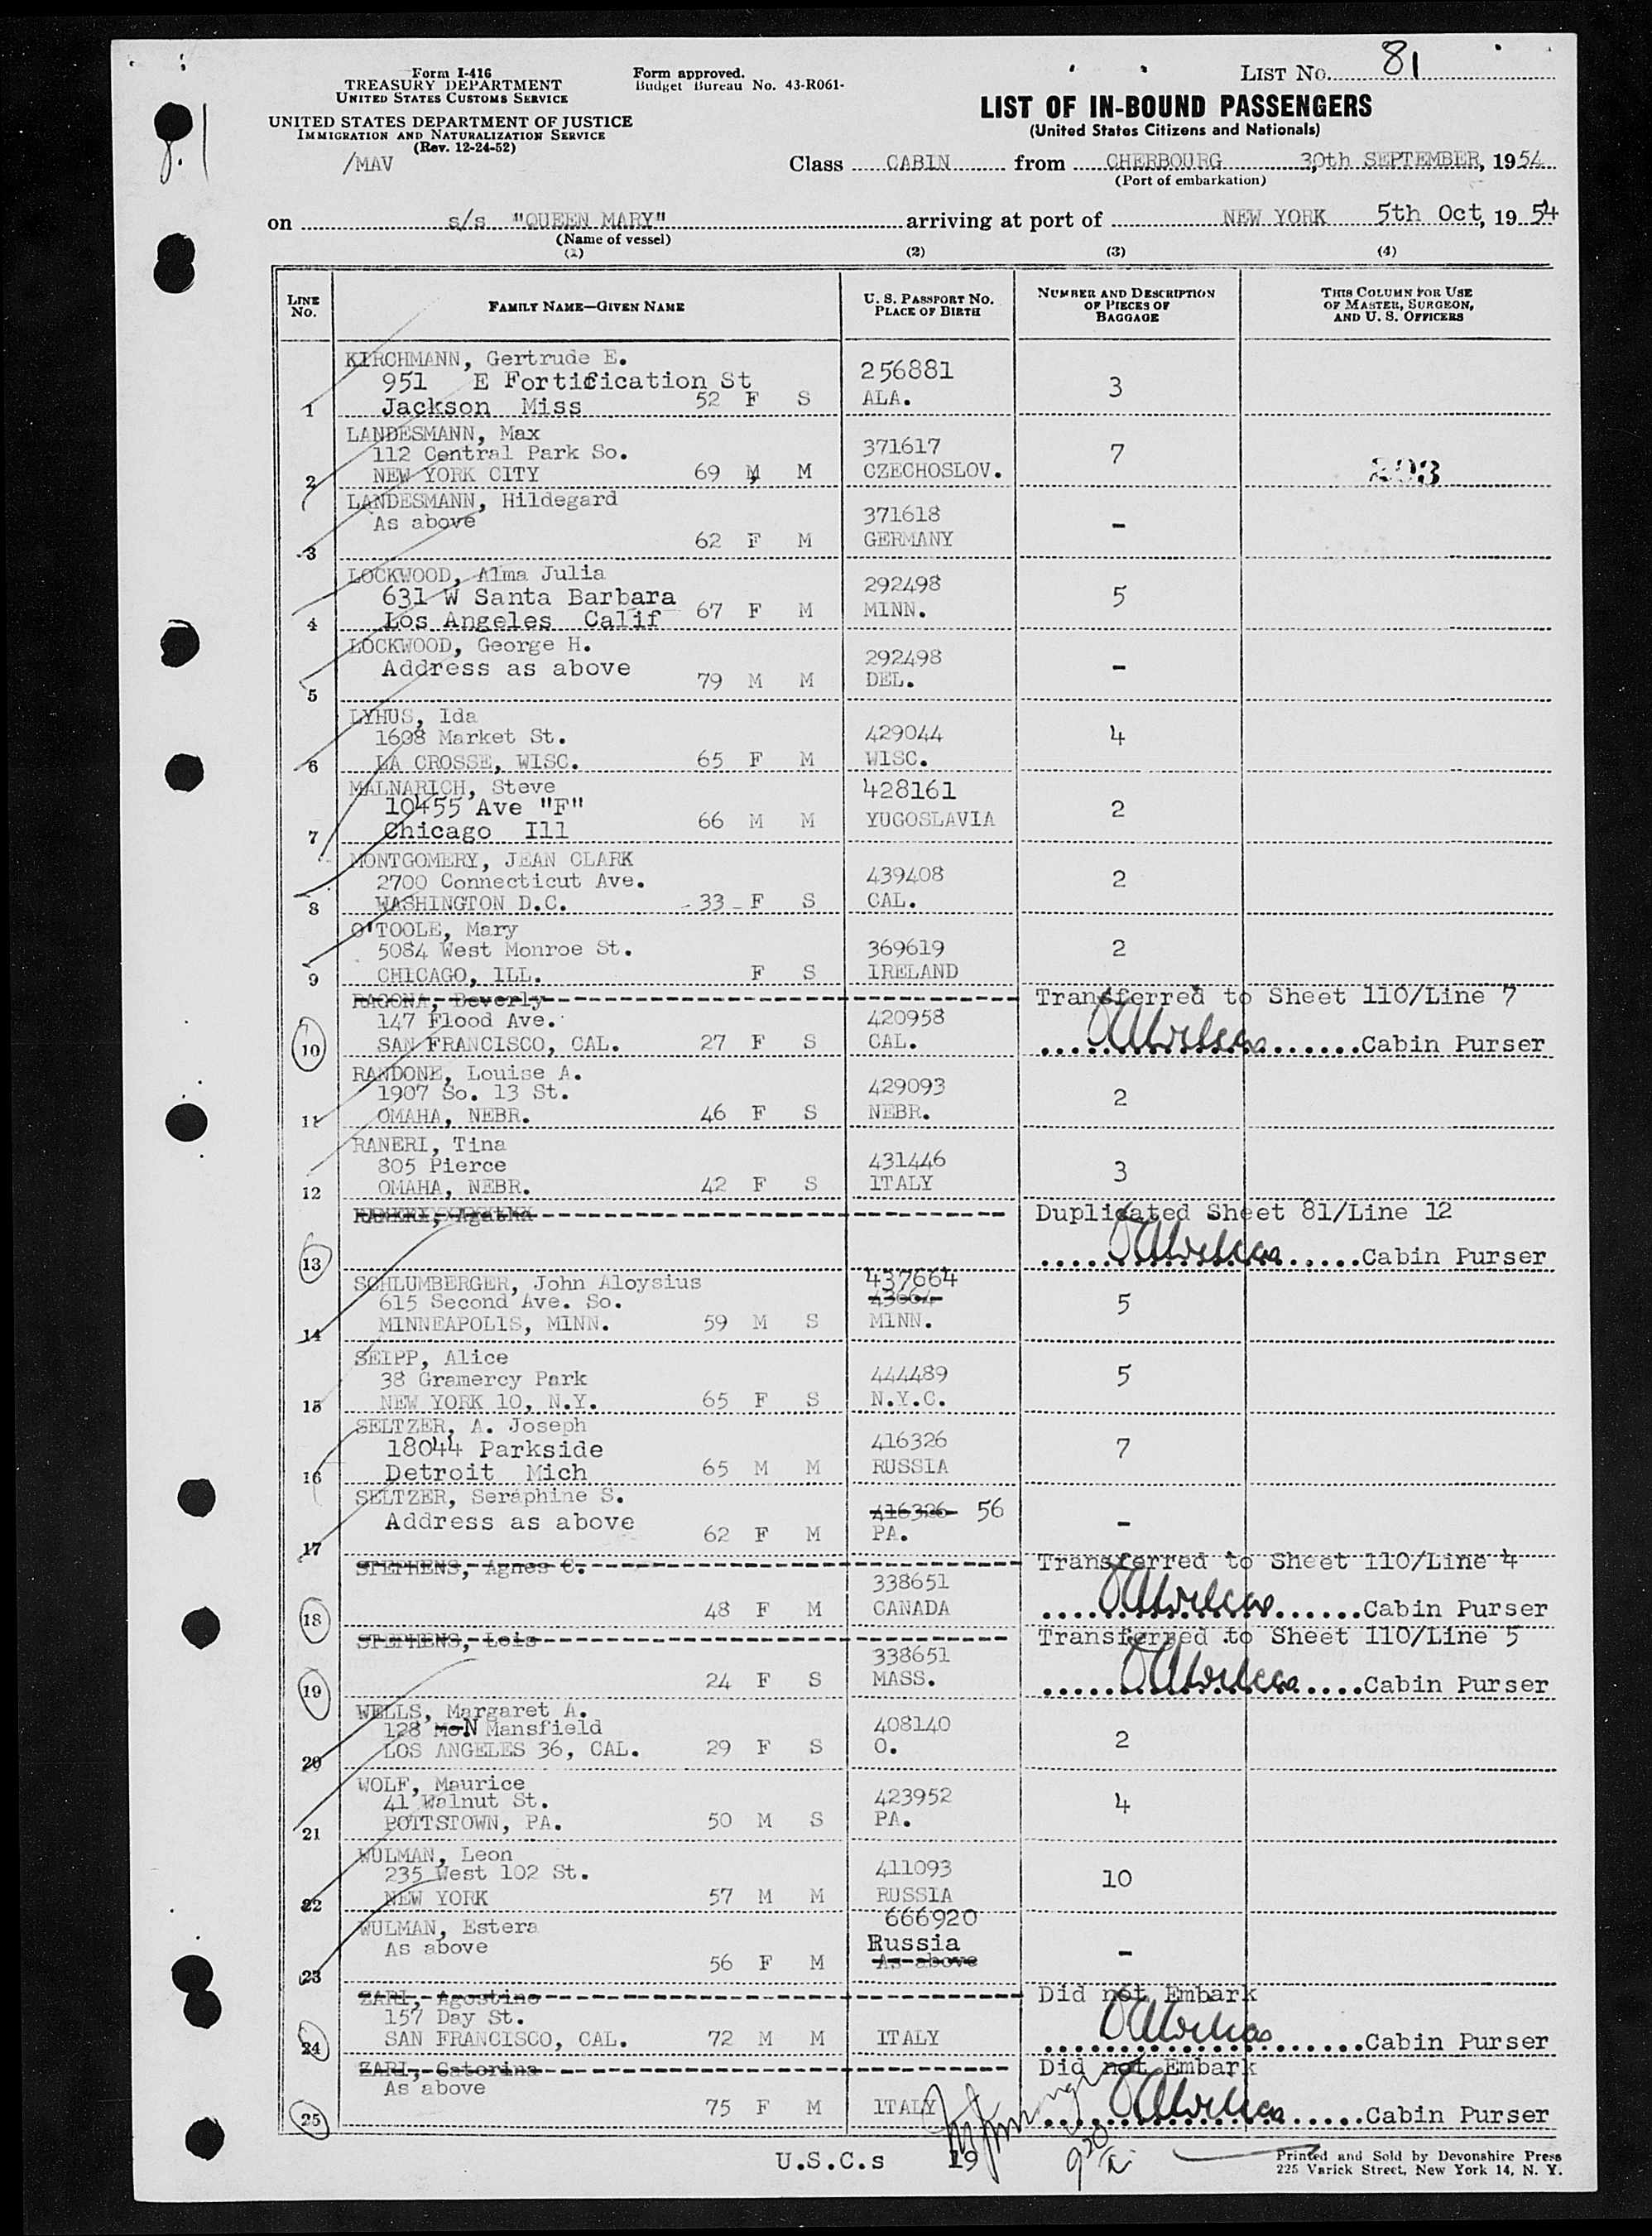 Form I-416
TREASURY DEPARTMENT
UNITED STATES CUSTOMS SERVICE
UNITED STATES DEPARTMENT OF JUSTICE
IMMIGRATION AND NATURALIZATION SERVICE
(Rev. 12-24-52)
/MAV
Form approved.
Budget Bureau No. 43-R061-
LIST No. 81
LIST OF IN-BOUND PASSENGERS
(United States Citizens and Nationals)
Class CABIN from CHERBOURG 30th SEPTEMBER, 1954
(Port of embarkation)
on s/s "QUEEN MARY" arriving at port of NEW YORK 5th Oct, 19 54
(Name of vessel)
(1) (2) (3) (4)
LINE No. FAMILY NAME—GIVEN NAME U. S. PASSPORT No. PLACE OF BIRTH NUMBER AND DESCRIPTION OF PIECES OF BAGGAGE THIS COLUMN FOR USE OF MASTER, SURGEON, AND U. S. OFFICERS
KIRCHMANN, Gertrude E.
951 E Fortification St 256881 3
1 Jackson Miss 52 F S ALA.
LANDESMANN, Max
112 Central Park So. 371617 7
2 NEW YORK CITY 69 M M CZECHOSLOV. 203
LANDESMANN, Hildegard
As above 371618 -
3 62 F M GERMANY
LOCKWOOD, Alma Julia
631 W Santa Barbara 292498 5
4 Los Angeles Calif 67 F M MINN.
LOCKWOOD, George H.
Address as above 292498 -
5 79 M M DEL.
LYHUS, Ida
1608 Market St. 429044 4
6 LA CROSSE, WISC. 65 F M WISC.
MALNARICH, Steve
10455 Ave "F" 428161 2
7 Chicago Ill 66 M M YUGOSLAVIA
MONTGOMERY, JEAN CLARK
2700 Connecticut Ave. 439408 2
8 WASHINGTON D.C. 33 F S CAL.
O'TOOLE, Mary
5084 West Monroe St. 369619 2
9 CHICAGO, ILL. F S IRELAND
RAGONA, Beverly Transferred to Sheet 110/Line 7
147 Flood Ave. 420958
10 SAN FRANCISCO, CAL. 27 F S CAL. Cabin Purser
RANDONE, Louise A.
1907 So. 13 St. 429093 2
11 OMAHA, NEBR. 46 F S NEBR.
RANERI, Tina
805 Pierce 431446 3
12 OMAHA, NEBR. 42 F S ITALY
RANERI, Agatha Duplicated Sheet 81/Line 12
13 Cabin Purser
SCHLUMBERGER, John Aloysius 437664
615 Second Ave. So. 43664 5
14 MINNEAPOLIS, MINN. 59 M S MINN.
SEIPP, Alice
38 Gramercy Park 444489 5
15 NEW YORK 10, N.Y. 65 F S N.Y.C.
SELTZER, A. Joseph
18044 Parkside 416326 7
16 Detroit Mich 65 M M RUSSIA
SELTZER, Seraphine S.
Address as above 416326 56 -
17 62 F M PA.
STEPHENS, Agnes C. Transferred to Sheet 110/Line 4
338651
18 48 F M CANADA Cabin Purser
STEPHENS, Lois Transferred to Sheet 110/Line 5
338651
19 24 F S MASS. Cabin Purser
WELLS, Margaret A.
128 No N Mansfield 408140 2
20 LOS ANGELES 36, CAL. 29 F S O.
WOLF, Maurice
41 Walnut St. 423952 4
21 POTTSTOWN, PA. 50 M S PA.
WULMAN, Leon
235 West 102 St. 411093 10
22 NEW YORK 57 M M RUSSIA
WULMAN, Estera 666920
As above Russia -
23 56 F M As above
ZARI, Agostino Did not Embark
157 Day St.
24 SAN FRANCISCO, CAL. 72 M M ITALY Cabin Purser
ZARI, Catorina Did not Embark
As above
25 75 F M ITALY Cabin Purser
U.S.C.s 19
Printed and Sold by Devonshire Press
225 Varick Street, New York 14, N. Y.